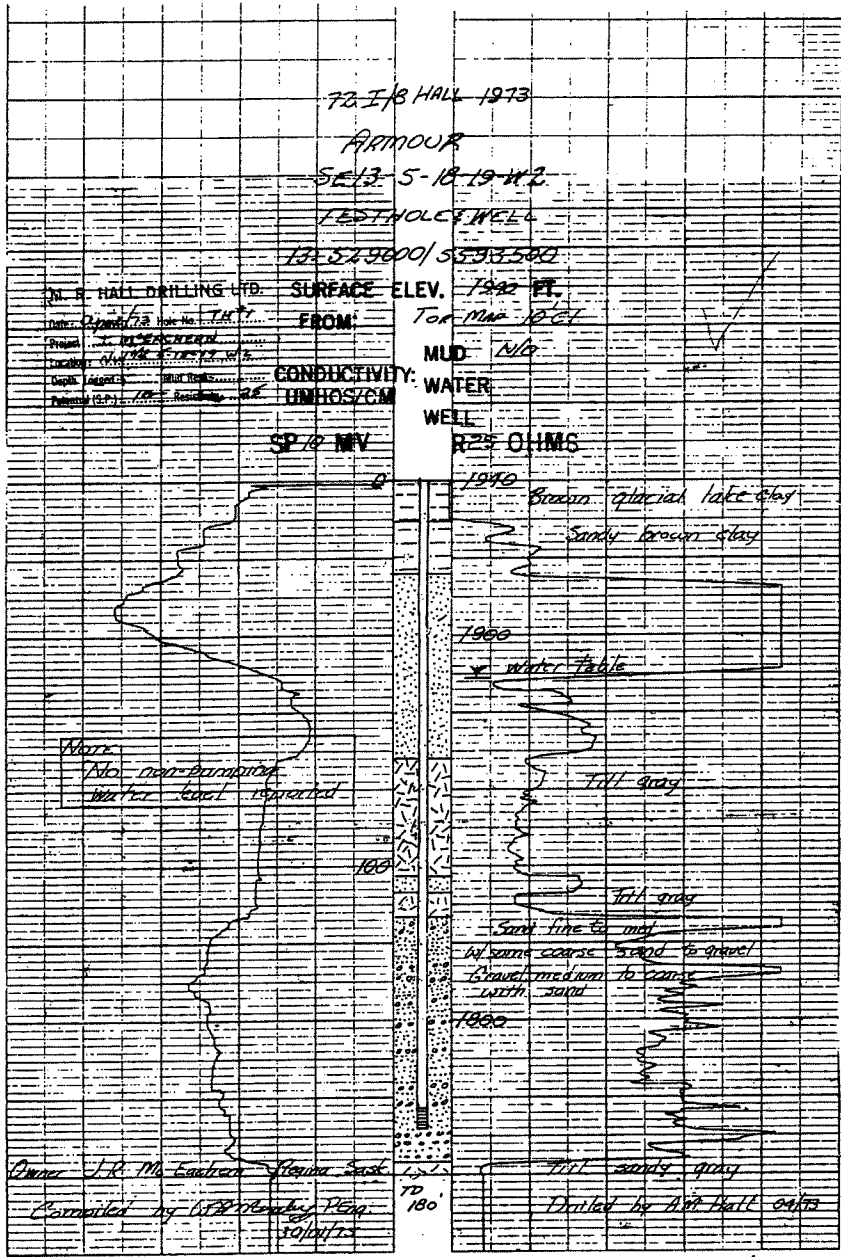 72 I/B HALL 1973
ARMOUR
SE13-5-18-19-W2
TESTHOLE & WELL
13-529000/5593500
M. R. HALL DRILLING LTD.
Date: /73 Hole No. TH#1
Project
Location: W2
Depth Logged Mud Res.
Potential (S.P.) 10 Res. 25
SURFACE ELEV. FT.
FROM: Top Map 10' CI
CONDUCTIVITY:
UMHOS/CM
MUD N/a
WATER
WELL
SP 10 MV R 25 OHMS
0 1940
Brown glacial lake clay
Sandy brown clay
1900
Water table
Note
No non-pumping
Water level reported
Till gray
100
Till gray
Sand fine to med
w/some coarse sand to gravel
Gravel medium to coarse
with sand
1800
Owner J.R. McEachern Regina Sask.
Till sandy gray
TD
180'
Compiled by P.Eng.
Drilled by Hall 04/73